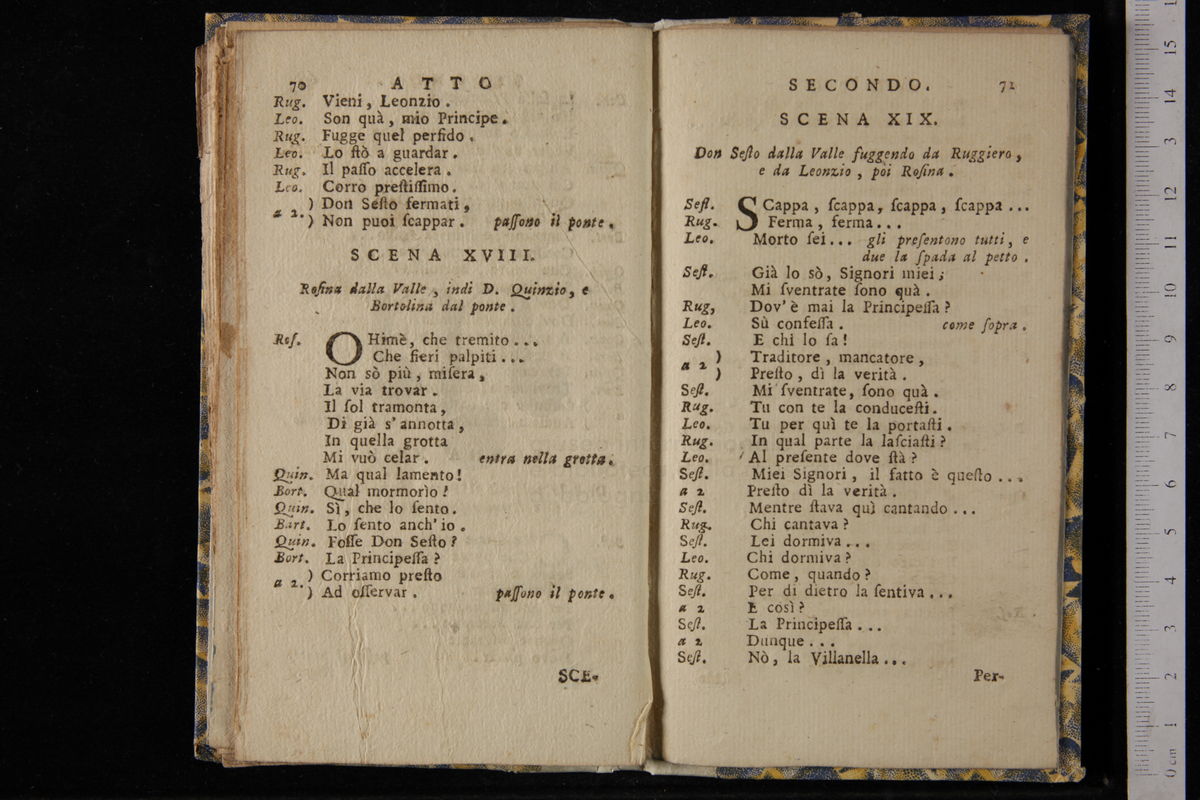 70 ATTO
Rug. Vieni, Leonzio.
Leo. Son quà, mio Principe.
Rug. Fugge quel perfido.
Leo. Lo ſtò a guardar.
Rug. Il paſſo accelera.
Leo. Corro preſtiſſimo.
) Don Seſto fermati,
a 2.
) Non puoi ſcappar. paſſono il ponte.
SCENA XVIII.
Roſina dalla Valle, indi D. Quinzio, e
Bortolina dal ponte.
Roſ. OHimè, che tremito...
Che fieri palpiti...
Non sò più, miſera,
La via trovar.
Il ſol tramonta,
Di già s'annotta,
In quella grotta
Mi vuò celar. entra nella grotta.
Quin. Ma qual lamento!
Bort. Qual mormorìo!
Quin. Sì, che lo ſento.
Bart. Lo ſento anch'io.
Quin. Foſſe Don Seſto?
Bort. La Principeſſa?
) Corriamo preſto
a 2.
) Ad oſſervar. paſſono il ponte.
SCE-
SECONDO. 71
SCENA XIX.
Don Seſto dalla Valle fuggendo da Ruggiero,
e da Leonzio, poi Roſina.
Seſt. SCappa, ſcappa, ſcappa, ſcappa...
Rug. Ferma, ferma...
Leo. Morto ſei... gli preſentono tutti, e
due la ſpada al petto.
Seſt. Già lo sò, Signori miei;
Mi ſventrate ſono quà.
Rug, Dov'è mai la Principeſſa?
Leo. Sù confeſſa. come ſopra.
Seſt. E chi lo ſa!
) Traditore, mancatore,
a 2
) Preſto, dì la verità.
Seſt. Mi ſventrate, ſono quà.
Rug. Tu con te la conduceſti.
Leo. Tu per quì te la portaſti.
Rug. In qual parte la laſciaſti?
Leo. Al preſente dove ſtà?
Seſt. Miei Signori, il fatto è queſto...
a 2 Preſto dì la verità.
Seſt. Mentre ſtava quì cantando...
Rug. Chi cantava?
Seſt. Lei dormiva...
Leo. Chi dormiva?
Rug. Come, quando?
Seſt. Per di dietro la ſentiva...
a 2 E così?
Seſt. La Principeſſa...
a 2 Dunque...
Seſt. Nò, la Villanella...
Per-
0 cm 1 2 3 4 5 6 7 8 9 10 11 12 13 14 15